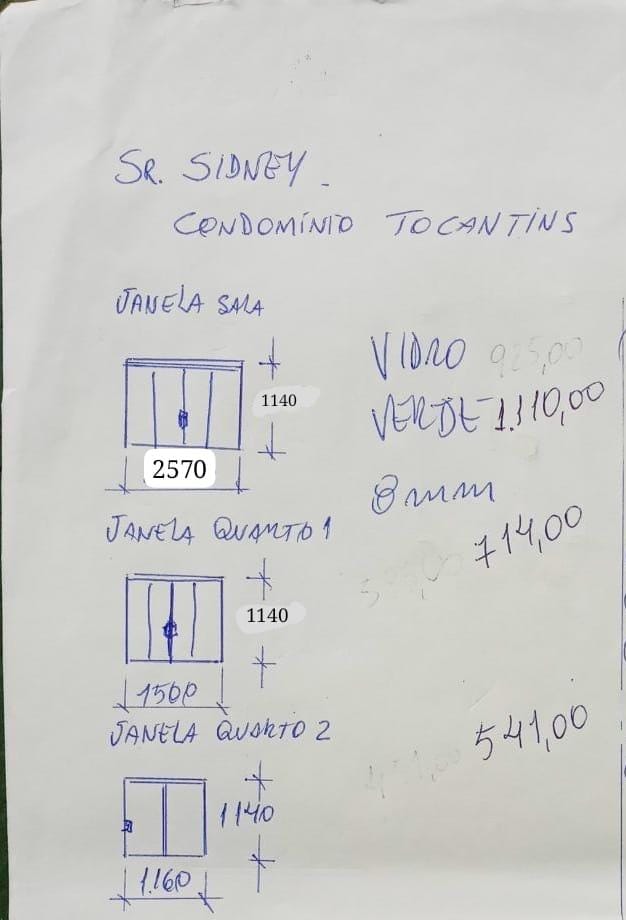 SR. SIDNEY.
CONDOMÍNIO TOCANTINS
JANELA SALA
VIDRO 925,00
1140
VERDE 1.110,00
2570
8mm
JANELA QUARTO 1
714,00
1140
1500
JANELA QUARTO 2
541,00
1140
1.160